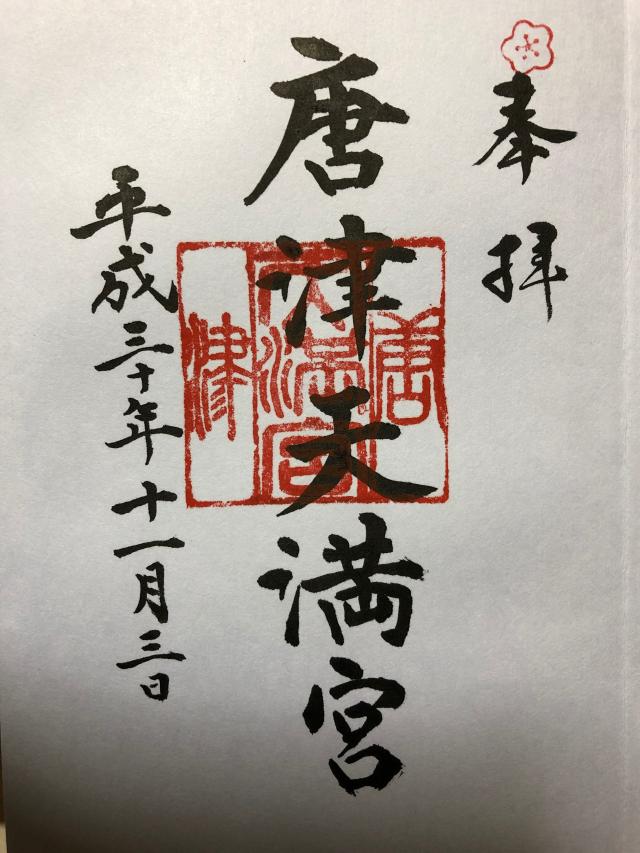 奉拝
唐津天満宮
唐津天満宮
平成三十年十一月三日